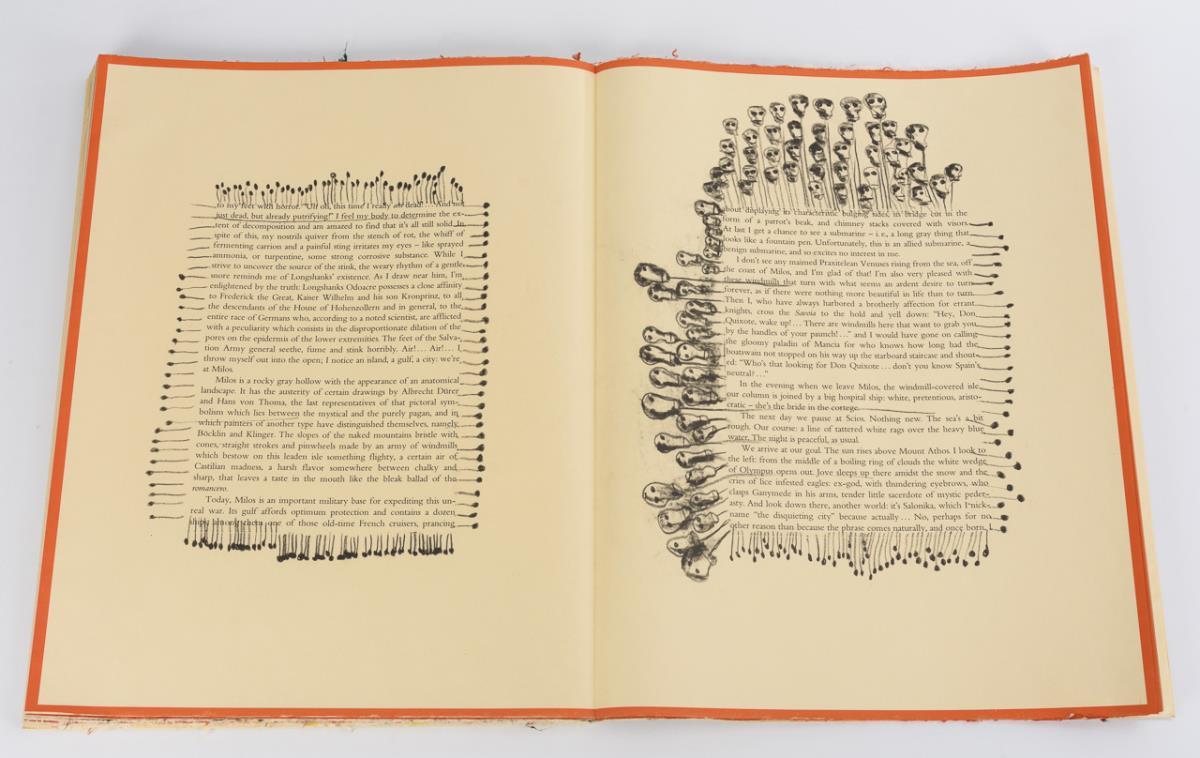 to my feet with horror. "Uh oh, this time I really am dead! ... And not
just dead, but already putrifying!" I feel my body to determine the ex-
tent of decomposition and am amazed to find that it's all still solid. In
spite of this, my nostrils quiver from the stench of rot, the whiff of
fermenting carrion and a painful sting irritates my eyes – like sprayed
ammonia, or turpentine, some strong corrosive substance. While I
strive to uncover the source of the stink, the weary rhythm of a gentle
snore reminds me of Longshanks' existence. As I draw near him, I'm
enlightened by the truth: Longshanks Odoacre possesses a close affinity
to Frederick the Great, Kaiser Wilhelm and his son Kronprinz, to all
the descendants of the House of Hohenzollern and in general, to the
entire race of Germans who, according to a noted scientist, are afflicted
with a peculiarity which consists in the disproportionate dilation of the
pores on the epidermis of the lower extremities. The feet of the Salva-
tion Army general seethe, fume and stink horribly. Air! ... Air! ... I
throw myself out into the open; I notice an island, a gulf, a city: we're
at Milos.
Milos is a rocky gray hollow with the appearance of an anatomical
landscape. It has the austerity of certain drawings by Albrecht Dürer
and Hans von Thoma, the last representatives of that pictoral sym-
bolism which lies between the mystical and the purely pagan, and in
which painters of another type have distinguished themselves, namely
Böcklin and Klinger. The slopes of the naked mountains bristle with
cones, straight strokes and pinwheels made by an army of windmills
which bestow on this leaden isle something flighty, a certain air of
Castilian madness, a harsh flavor somewhere between chalky and
sharp, that leaves a taste in the mouth like the bleak ballad of the
romancero.
Today, Milos is an important military base for expediting this un-
real war. Its gulf affords optimum protection and contains a dozen
ships among them one of those old-time French cruisers, prancing
about displaying its characteristic bulging sides, its bridge cut in the
form of a parrot's beak, and chimney stacks covered with visors.
At last I get a chance to see a submarine – i.e., a long gray thing that
looks like a fountain pen. Unfortunately, this is an allied submarine, a
benign submarine, and so excites no interest in me.
I don't see any maimed Praxitelean Venuses rising from the sea, off
the coast of Milos, and I'm glad of that! I'm also very pleased with
these windmills that turn with what seems an ardent desire to turn
forever, as if there were nothing more beautiful in life than to turn.
Then I, who have always harbored a brotherly affection for errant
knights, cross the Savoia to the hold and yell down: "Hey, Don
Quixote, wake up! ... There are windmills here that want to grab you
by the handles of your paunch! ..." and I would have gone on calling
the gloomy paladin of Mancia for who knows how long had the
boatswain not stopped on his way up the starboard staircase and shout-
ed: "Who's that looking for Don Quixote ... don't you know Spain's
neutral? ..."
In the evening when we leave Milos, the windmill-covered isle,
our column is joined by a big hospital ship: white, pretentious, aristo-
cratic – she's the bride in the cortege.
The next day we pause at Scios. Nothing new. The sea's a bit
rough. Our course: a line of tattered white rags over the heavy blue
water. The night is peaceful, as usual.
We arrive at our goal. The sun rises above Mount Athos. I look to
the left: from the middle of a boiling ring of clouds the white wedge
of Olympus opens out. Jove sleeps up there amidst the snow and the
cries of lice infested eagles: ex-god, with thundering eyebrows, who
clasps Ganymede in his arms, tender little sacerdote of mystic peder-
asty. And look down there, another world: it's Salonika, which I nick-
name "the disquieting city" because actually ... No, perhaps for no
other reason than because the phrase comes naturally, and once born, I